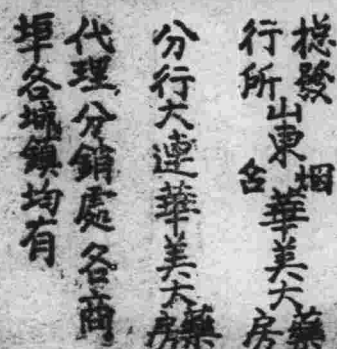 揔發行所山東烟台華美大藥房
分行大連華美大藥房
代理分銷處各商
埠各城鎮均有